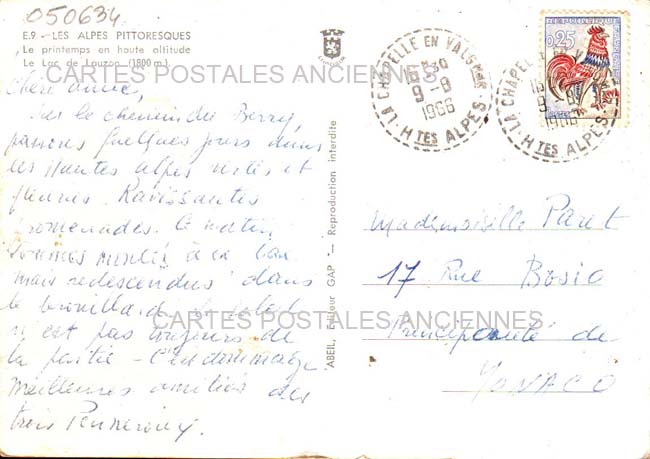 050634
E.9 - LES ALPES PITTORESQUES
Le printemps en haute altitude
Le Lac de Lauzon (1800 m.)
CARTES POSTALES ANCIENNES
Chère Annie,
Sur le chemin du Berry,
passons quelques jours dans
les Hautes Alpes vertes et
fleuries. Ravissantes
promenades. Ce matin
sommes montés à
mais redescendus dans
le brouillard. Le soleil
n'est pas toujours de
la partie - C'est dommage
Meilleures amitiés des
trois
CARTES POSTALES ANCIENNES
ABEIL, Editeur GAP - Reproduction interdite
LA CHAPELLE EN VALGMAR
9-8
1966
HTES ALPES
0,25
LA CHAPELLE EN
9-8
1966
HTES ALPES
Mademoiselle Paret
17 Rue Bosio
Principauté de
MONACO